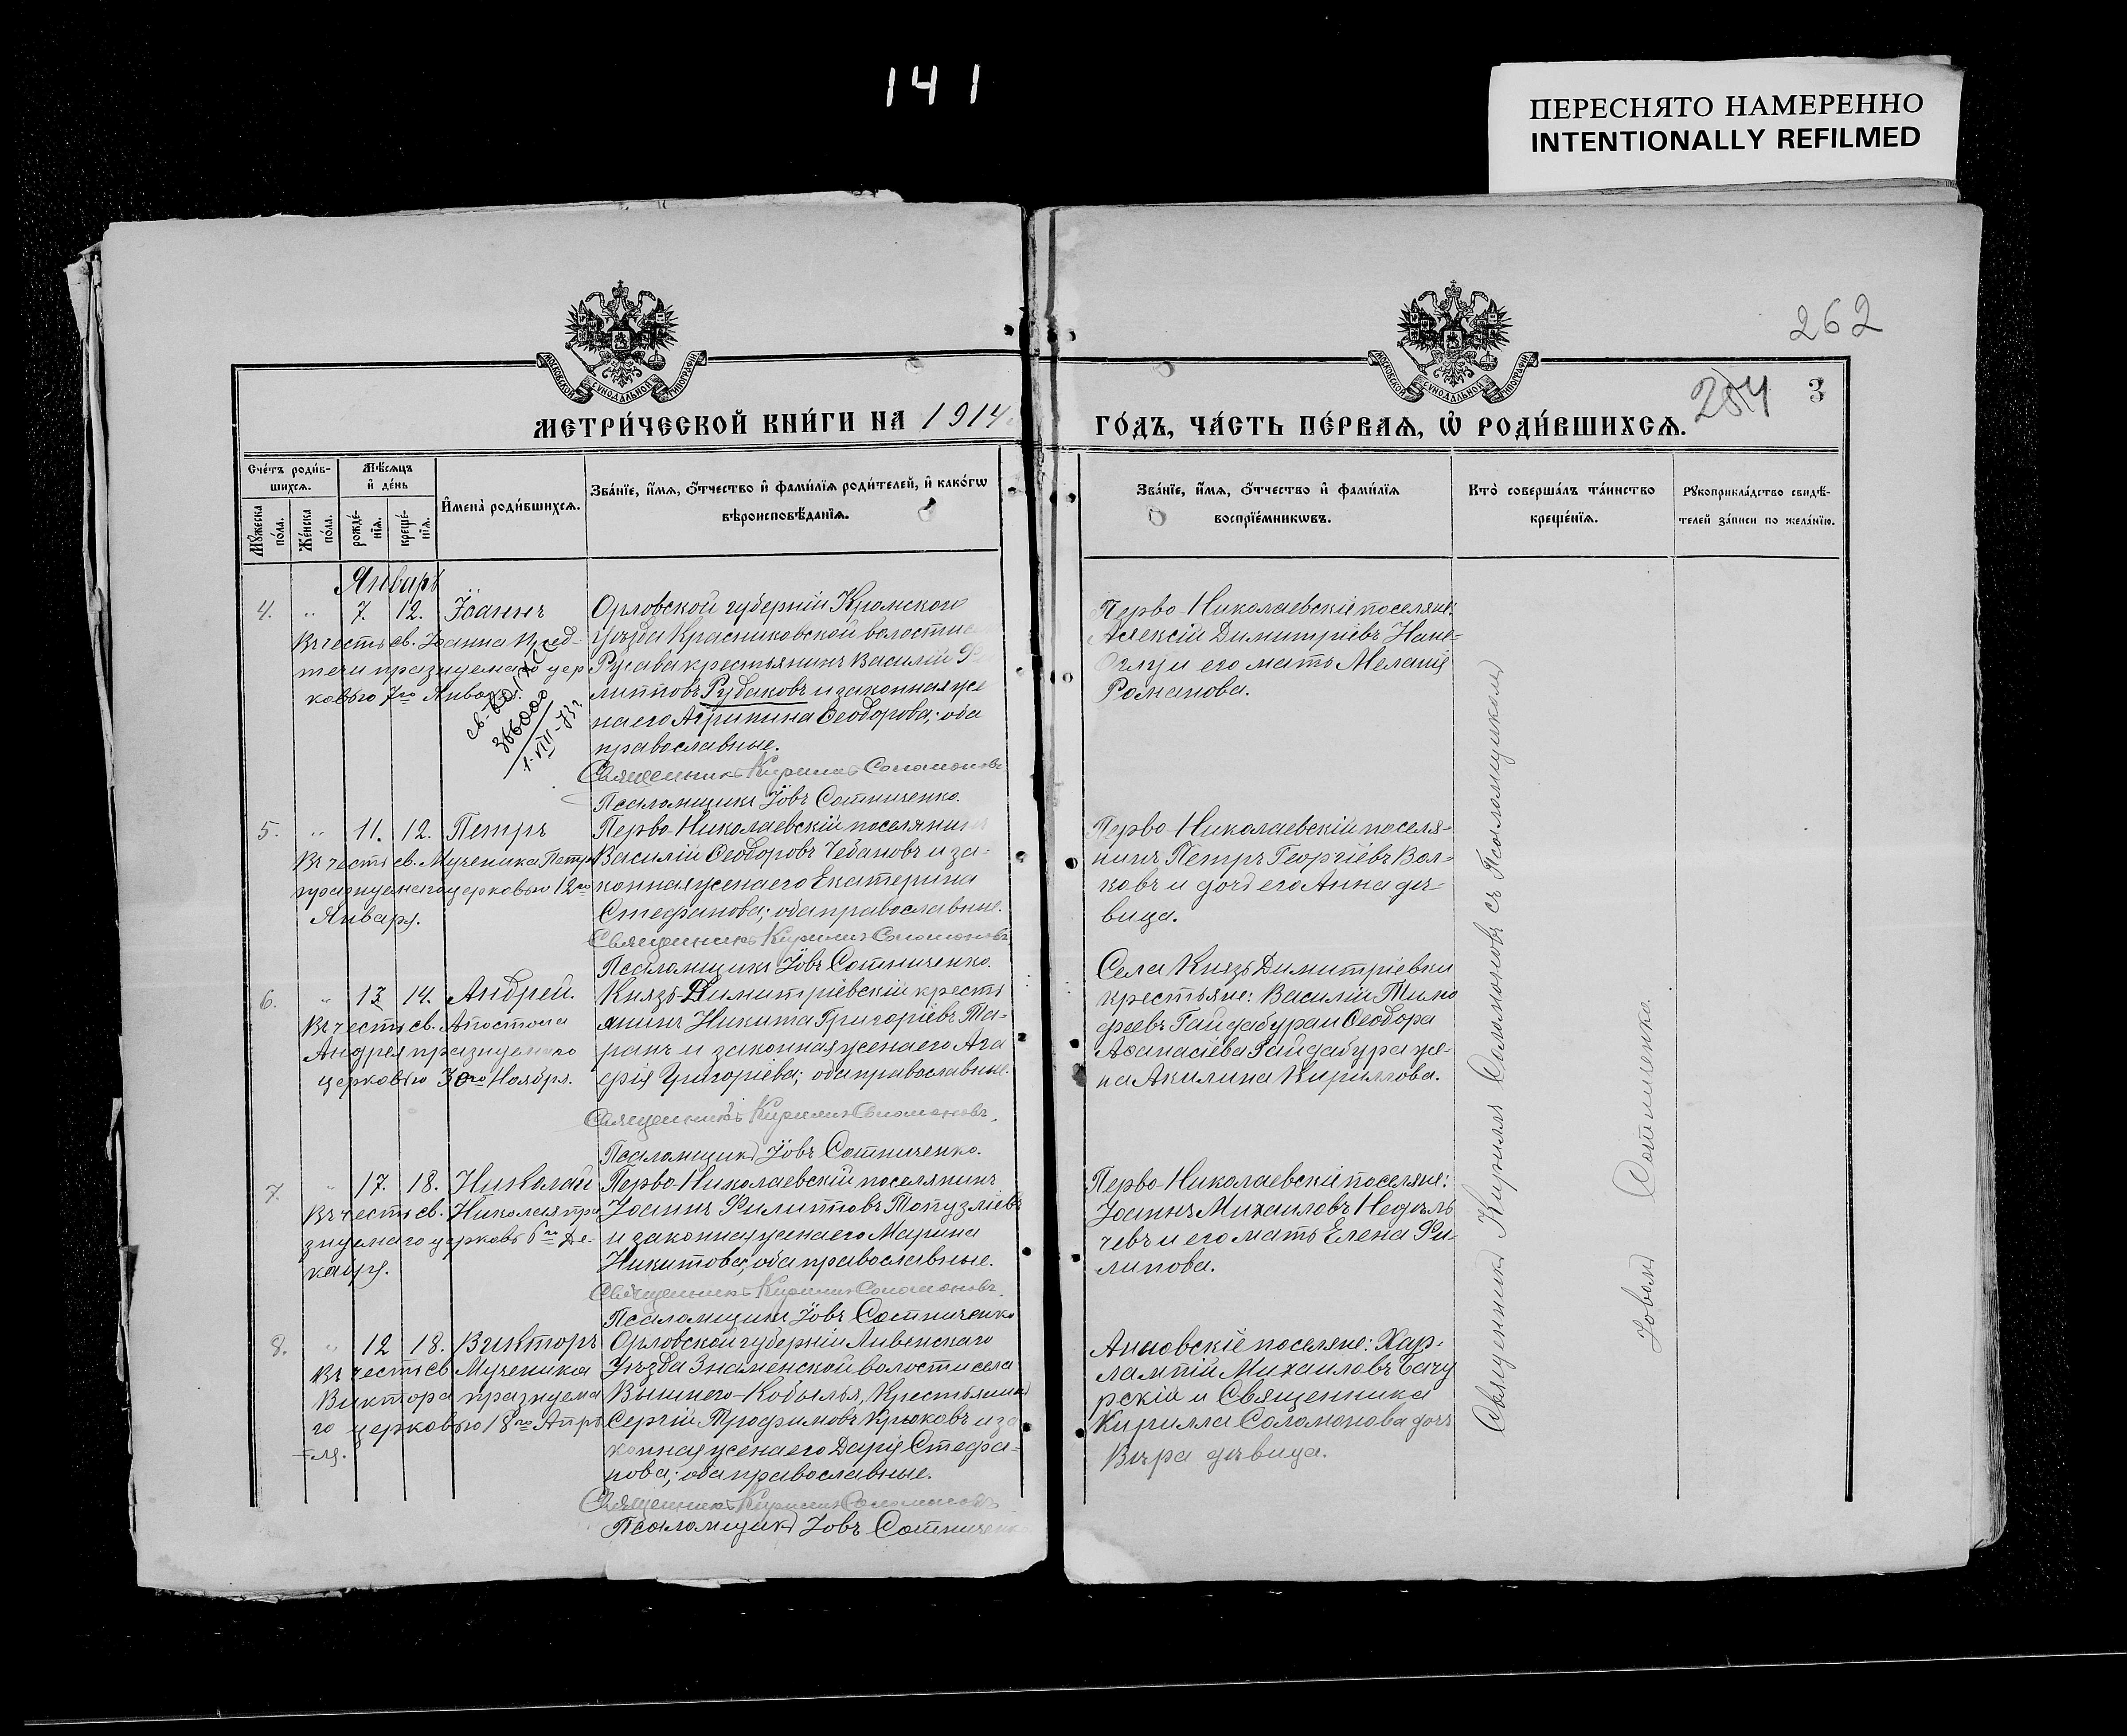 141
ПЕРЕСНЯТО НАМЕРЕННО
INTENTIONALLY REFILMED
262
254 3
МОСКОВСКОЙ СѴНОДАЛЬНОЙ ТИПОГРАФІИ
МОСКОВСКОЙ СѴНОДАЛЬНОЙ ТИПОГРАФІИ
МЕТРИ́ЧЕСКОЙ КНИ́ГИ НА 1914
ГО́ДЪ, ЧА́СТЬ ПЕ́РВАѦ, Ѡ҆ РОДИ́ВШИХСѦ.
Сче́тъ роди́в-
шихсѧ.
Мѣ́сѧцъ
и҆ де́нь
Мꙋ́жеска
по́ла.
Же́нска
по́ла.
рожде́-
нїѧ.
креще́-
нїѧ.
И҆мена̀ роди́вшихсѧ.
Зва́нїе, и҆́мѧ, ѻ҆́тчество и҆ фами́лїѧ роди́телей, и҆ како́гѡ
вѣроисповѣ́данїѧ.
Зва́нїе, и҆́мѧ, ѻ҆́тчество и҆ фами́лїѧ
воспрїе́мникѡвъ.
Кто̀ соверша́лъ та́инство
креще́нїѧ.
Рꙋкоприкла́дство свидѣ́-
телей за́писи по жела́нїю.
Январь
4. " 7. 12. Іоаннъ
Въ честь св. Іоанна Пред-
течи празднуемаго цер
ковью 7го Января
366000
1.VIII-73г
Орловской губерніи Кромскаго
уѣзда Красниковской волости с
Русава крестьянинъ Василій Фи
липповъ Рубаковъ и законная же
на его Агрипина Ѳеодорова; оба
православные.
Священникъ Кириллъ Соломоновъ
Псаломщикъ Іовъ Сотниченко.
Перво-Николаевскіе поселяне:
Алексій Димитріевъ Нане-
Оглу и его мать Меланія
Романова.
5. " 11. 12. Петръ
Въ честь св. Мученика Петра
празднуемаго церковью 12го
Января.
Перво-Николаевскій поселянинъ
Василій Ѳеодоровъ Чебановъ и за-
конная жена его Екатерина
Стефанова; оба православные.
Священникъ Кириллъ Соломоновъ
Псаломщикъ Іовъ Сотниченко.
Перво-Николаевскій поселя-
нинъ Петръ Георгіевъ Вол-
ковъ и дочь его Анна дѣ-
вица.
6. " 13 14. Андрей.
Въ честь св. Апостола
Андрея празднуемаго
церковью 30го Ноября.
Князь-Димитріевскій кресть
янинъ Никита Григоріевъ Та-
ранъ и законная жена его Ага
фія Григоріева; оба православные.
Священникъ Кириллъ Соломоновъ.
Псаломщикъ Іовъ Сотниченко.
Села Князь Димитріевки
крестьяне: Василій Тимо
феевъ Гайдабура и Ѳеодора
Аѳанасіева Гайдабура же-
на Акилина Кириллова.
7. " 17. 18. Николай
Въ честь св. Николая пра
зднуемаго церковью 6го Де-
кабря.
Перво-Николаевскій поселянинъ
Іоаннъ Филипповъ Топузліевъ
и законная жена его Марина
Никитова; оба православные.
Священникъ Кириллъ Соломоновъ.
Псаломщикъ Іовъ Сотниченко
Перво-Николаевскіе поселяне:
Іоаннъ Михаиловъ Недѣль
чевъ и его мать Елена Фи-
липова.
8. " 12 18. Викторъ
Въ честь св. Мученика
Виктора празднуема
го церковью 18го Апрѣ
ля.
Орловской губерніи Ливенскаго
Уѣзда Знаменской волости села
Вышнего-Кобылья, Крестьянинъ
Сергій Трофимовъ Крюковъ и за
конная жена его Дарія Стефа-
нова; оба православные.
Священникъ Кириллъ Соломоновъ
Псаломщикъ Іовъ Сотниченко
поселяне: Хар-
лампій Михаиловъ
и Священника
Кирилла Соломонова дочь
Вѣра дѣвица.
Священникъ Кириллъ Соломоновъ съ Псаломщикомъ
Іовомъ Сотниченко.